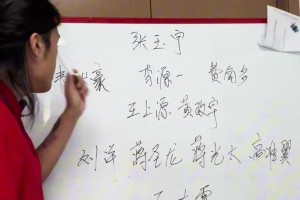 张玉宁
豪 肖源一 黄向多
王上源 黄政宇
刘洋 蒋圣龙 蒋光太 高准翼